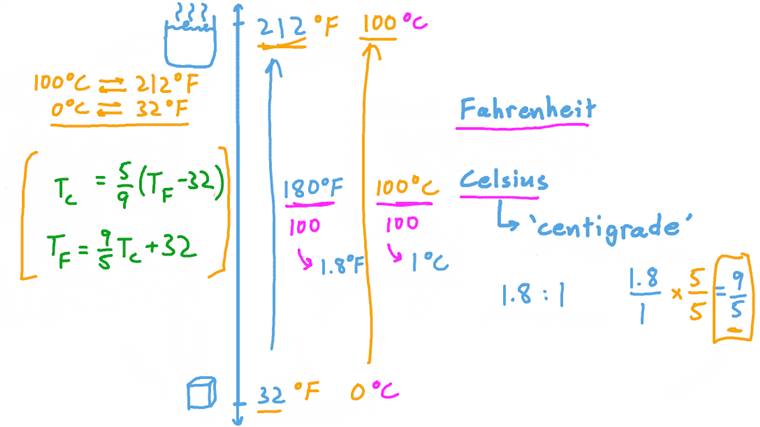 212 °F 100 °C
100°C ⇌ 212°F
0°C ⇌ 32°F
Fahrenheit
T_C = 5/9 (T_F - 32)
T_F = 9/5 T_C + 32
180°F / 100
↳ 1.8°F
100°C / 100
↳ 1°C
Celsius
↳ 'centigrade'
1.8 : 1
1.8/1 × 5/5 = 9/5
32 °F 0 °C